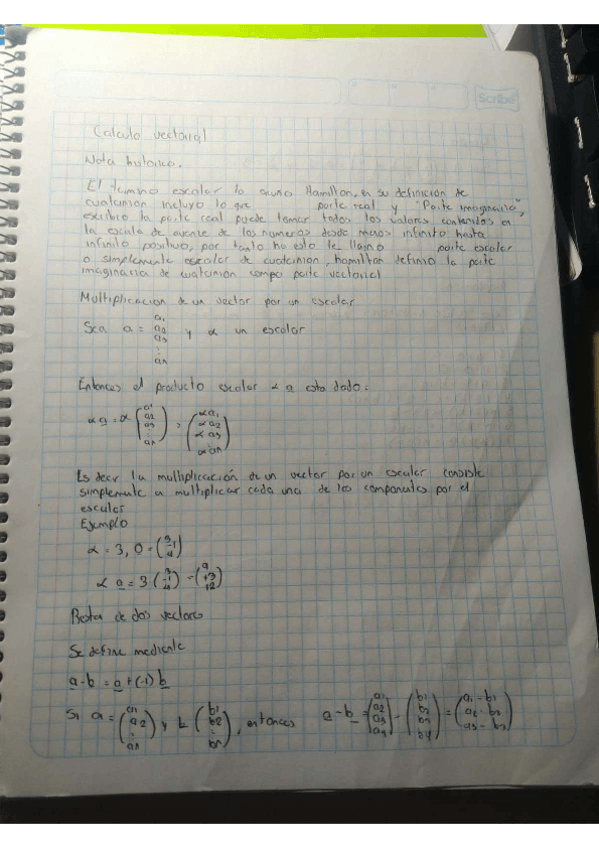 Scribe
Calculo vectorial
Nota historica.
El termino escalar lo Hamilton, en su definición de
cuaternion incluyo lo que parte real y "Parte imaginaria",
escribio la parte real puede tomar todos los valores contenidos en
la escala de avance de los numeros desde menos infinito hasta
infinito positivo, por tanto ha esto le llamo parte escalar
o simplemente escalar de cuaternion, hamilton definio la parte
imaginaria de como parte vectorial
Multiplicacion de un vector por un escalar
Sea a = a1 a2 a3 . . an y α un escalar
Entonces el producto escalar α a esta dado:
α a = α (a1 a2 a3 . . an) = (α a1 α a2 α a3 . α an)
Es decir la multiplicación de un vector por un escalar consiste
simplemente en multiplicar cada una de los componentes por el
escalar
Ejemplo
α = 3, a = (3 -1 4)
α a = 3 (3 -1 4) = (9 -3 12)
Resta de dos vectores
Se define mediante
a - b = a + (-1) b
Si a = (a1 a2 . an) y b (b1 b2 . bn), entonces a - b = (a1 a2 a3 a4) - (b1 b2 b3 b4) = (a1 - b1 a2 - b2 a3 - b3)